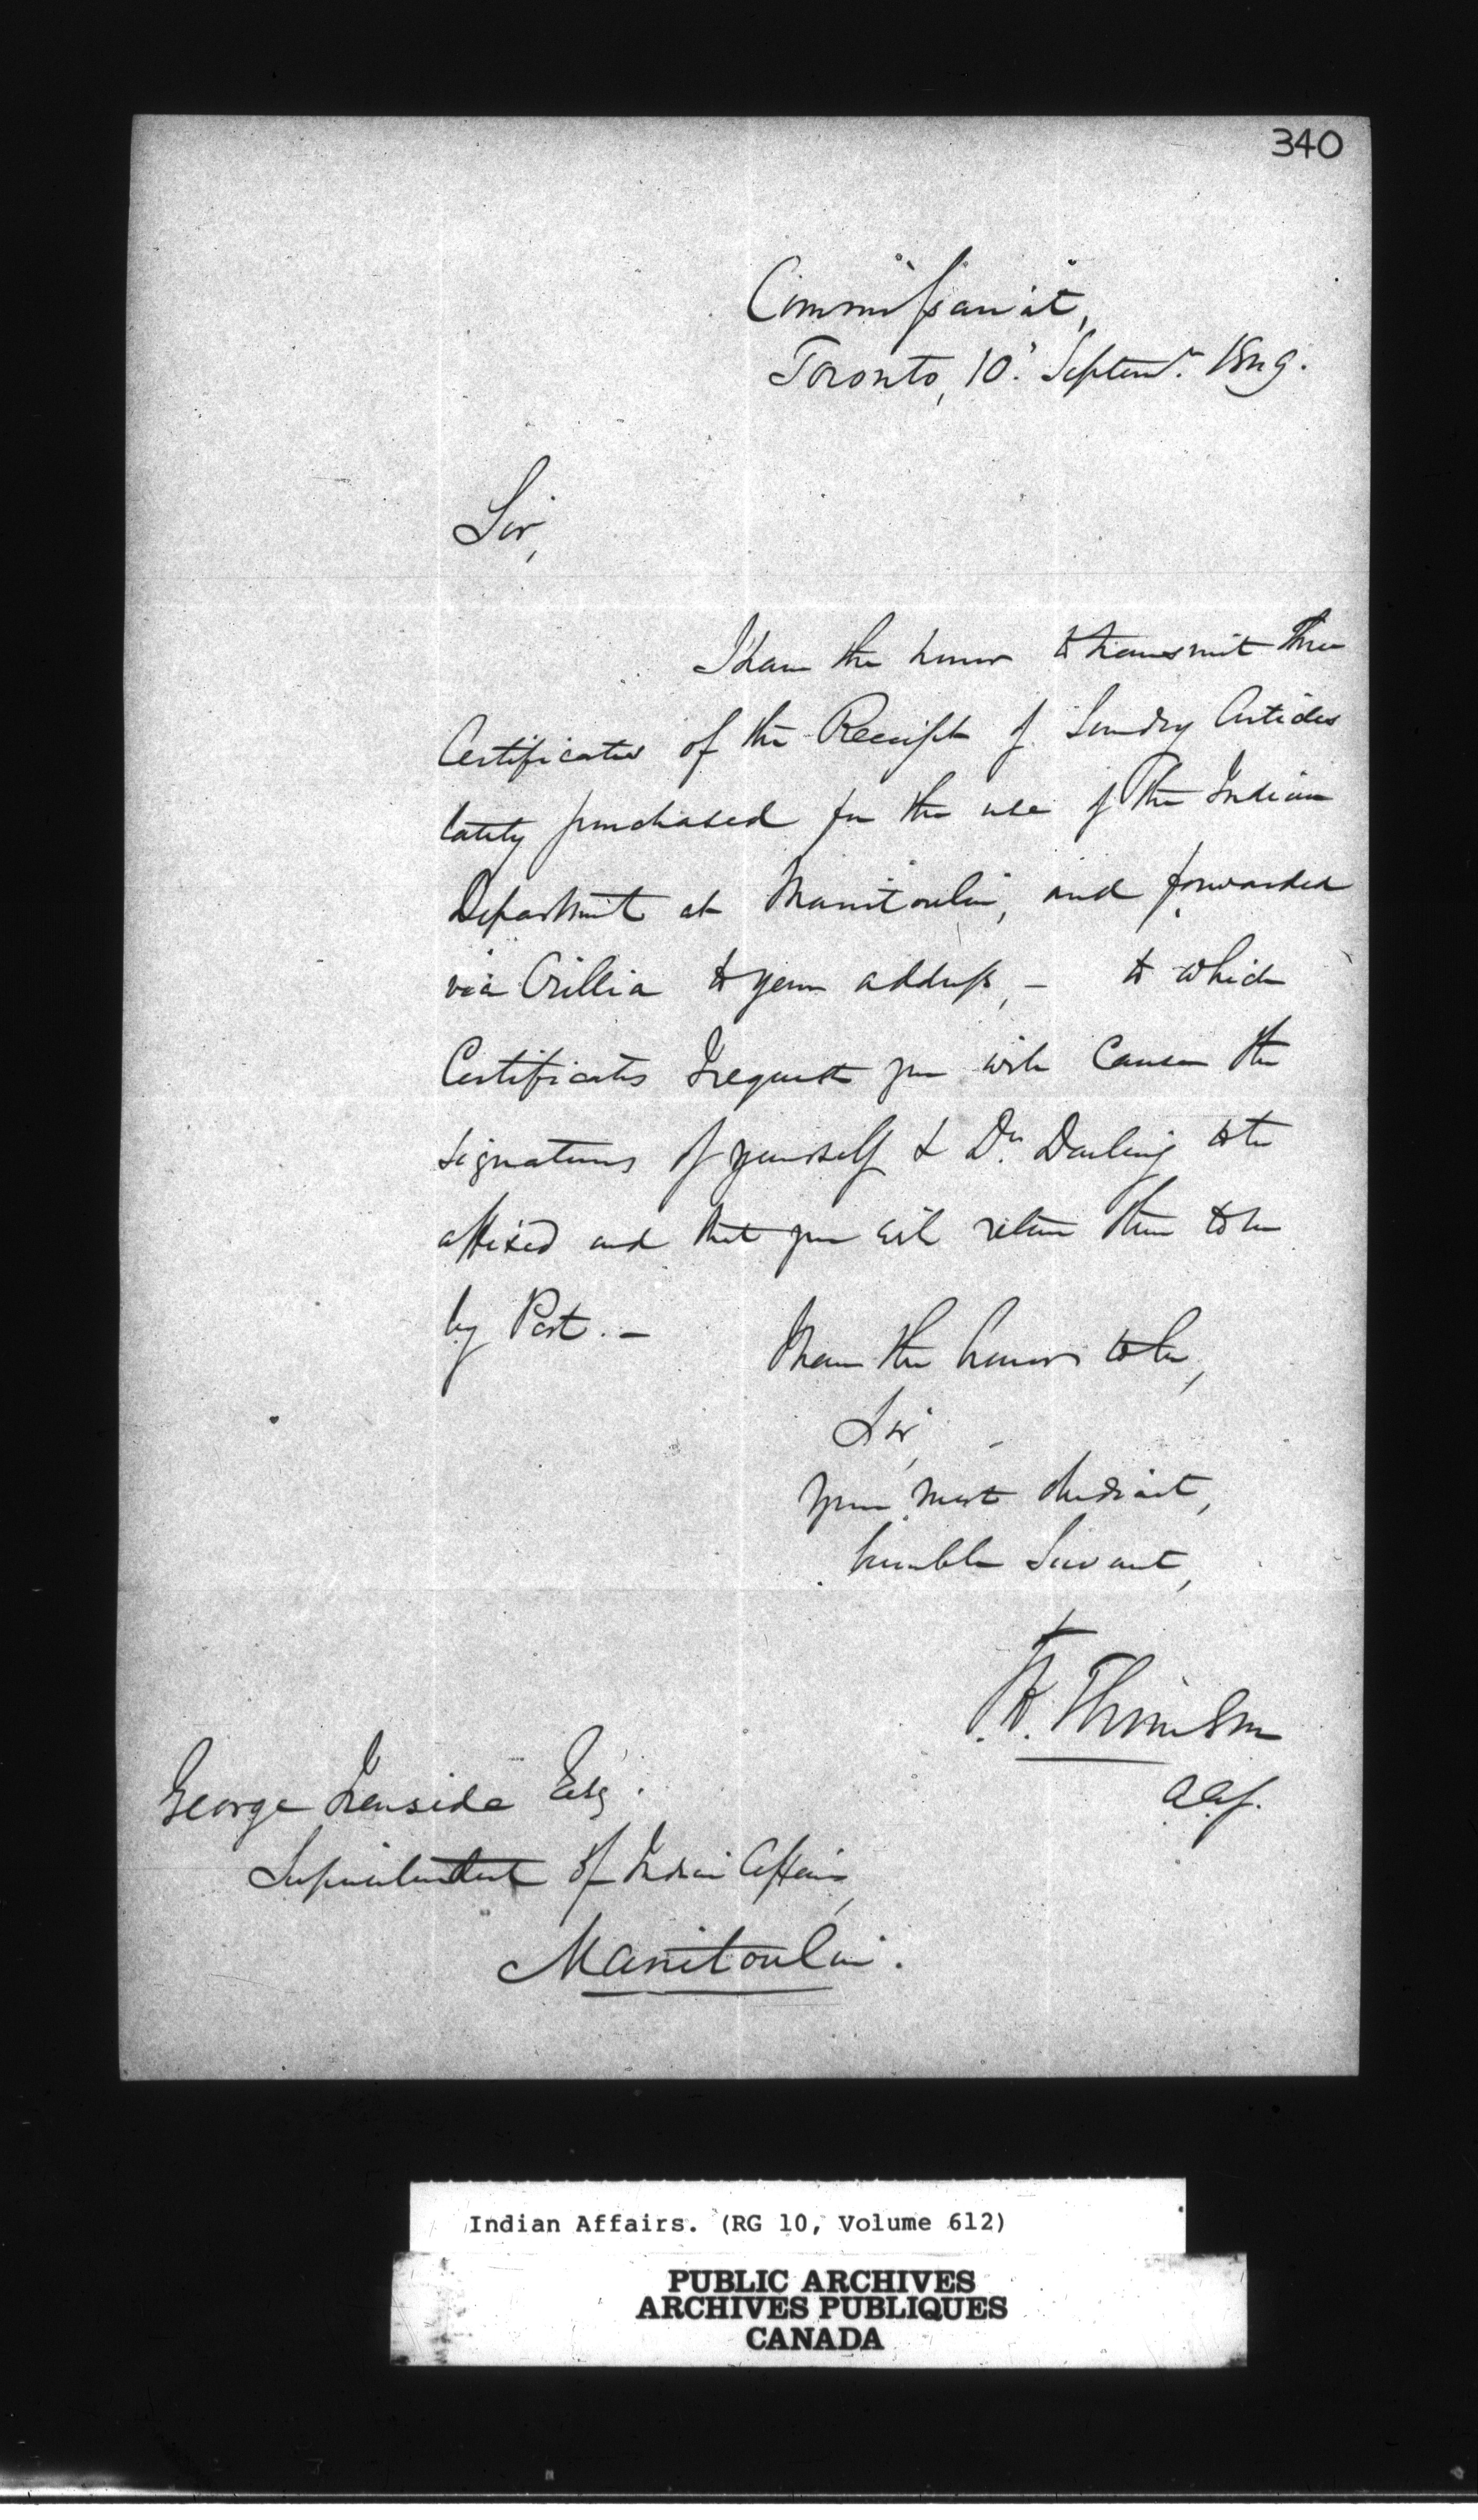 340
Commissariat,
Toronto, 10. Septemr. 1849.
Sir,
I have the honor to transmit three
Certificates of the Receipt of Sundry Articles
lately purchased for the use of the Indian
Department at Manitoulin, and forwarded
via Orillia to your address, – to which
Certificates I request you will cause the
signatures of yourself & Dr. Darling to be
affixed and that you will return them to me
by Post. –
I have the honor to be,
Sir,
Your most obedient,
humble Servant,
Thomson
George Ironside Esq.
Superintendent of Indian Affairs,
Manitoulin.
Indian Affairs. (RG 10, Volume 612)
PUBLIC ARCHIVES
ARCHIVES PUBLIQUES
CANADA